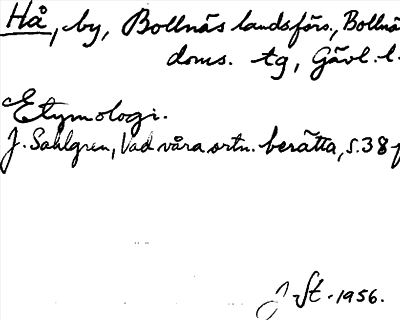 Hå, by, Bollnäs landsförs., Bollnä
doms. tg, Gävl. l.
Etymologi.
J. Sahlgren, Vad våra ortn. berätta, s. 38 f
J. St. 1956.